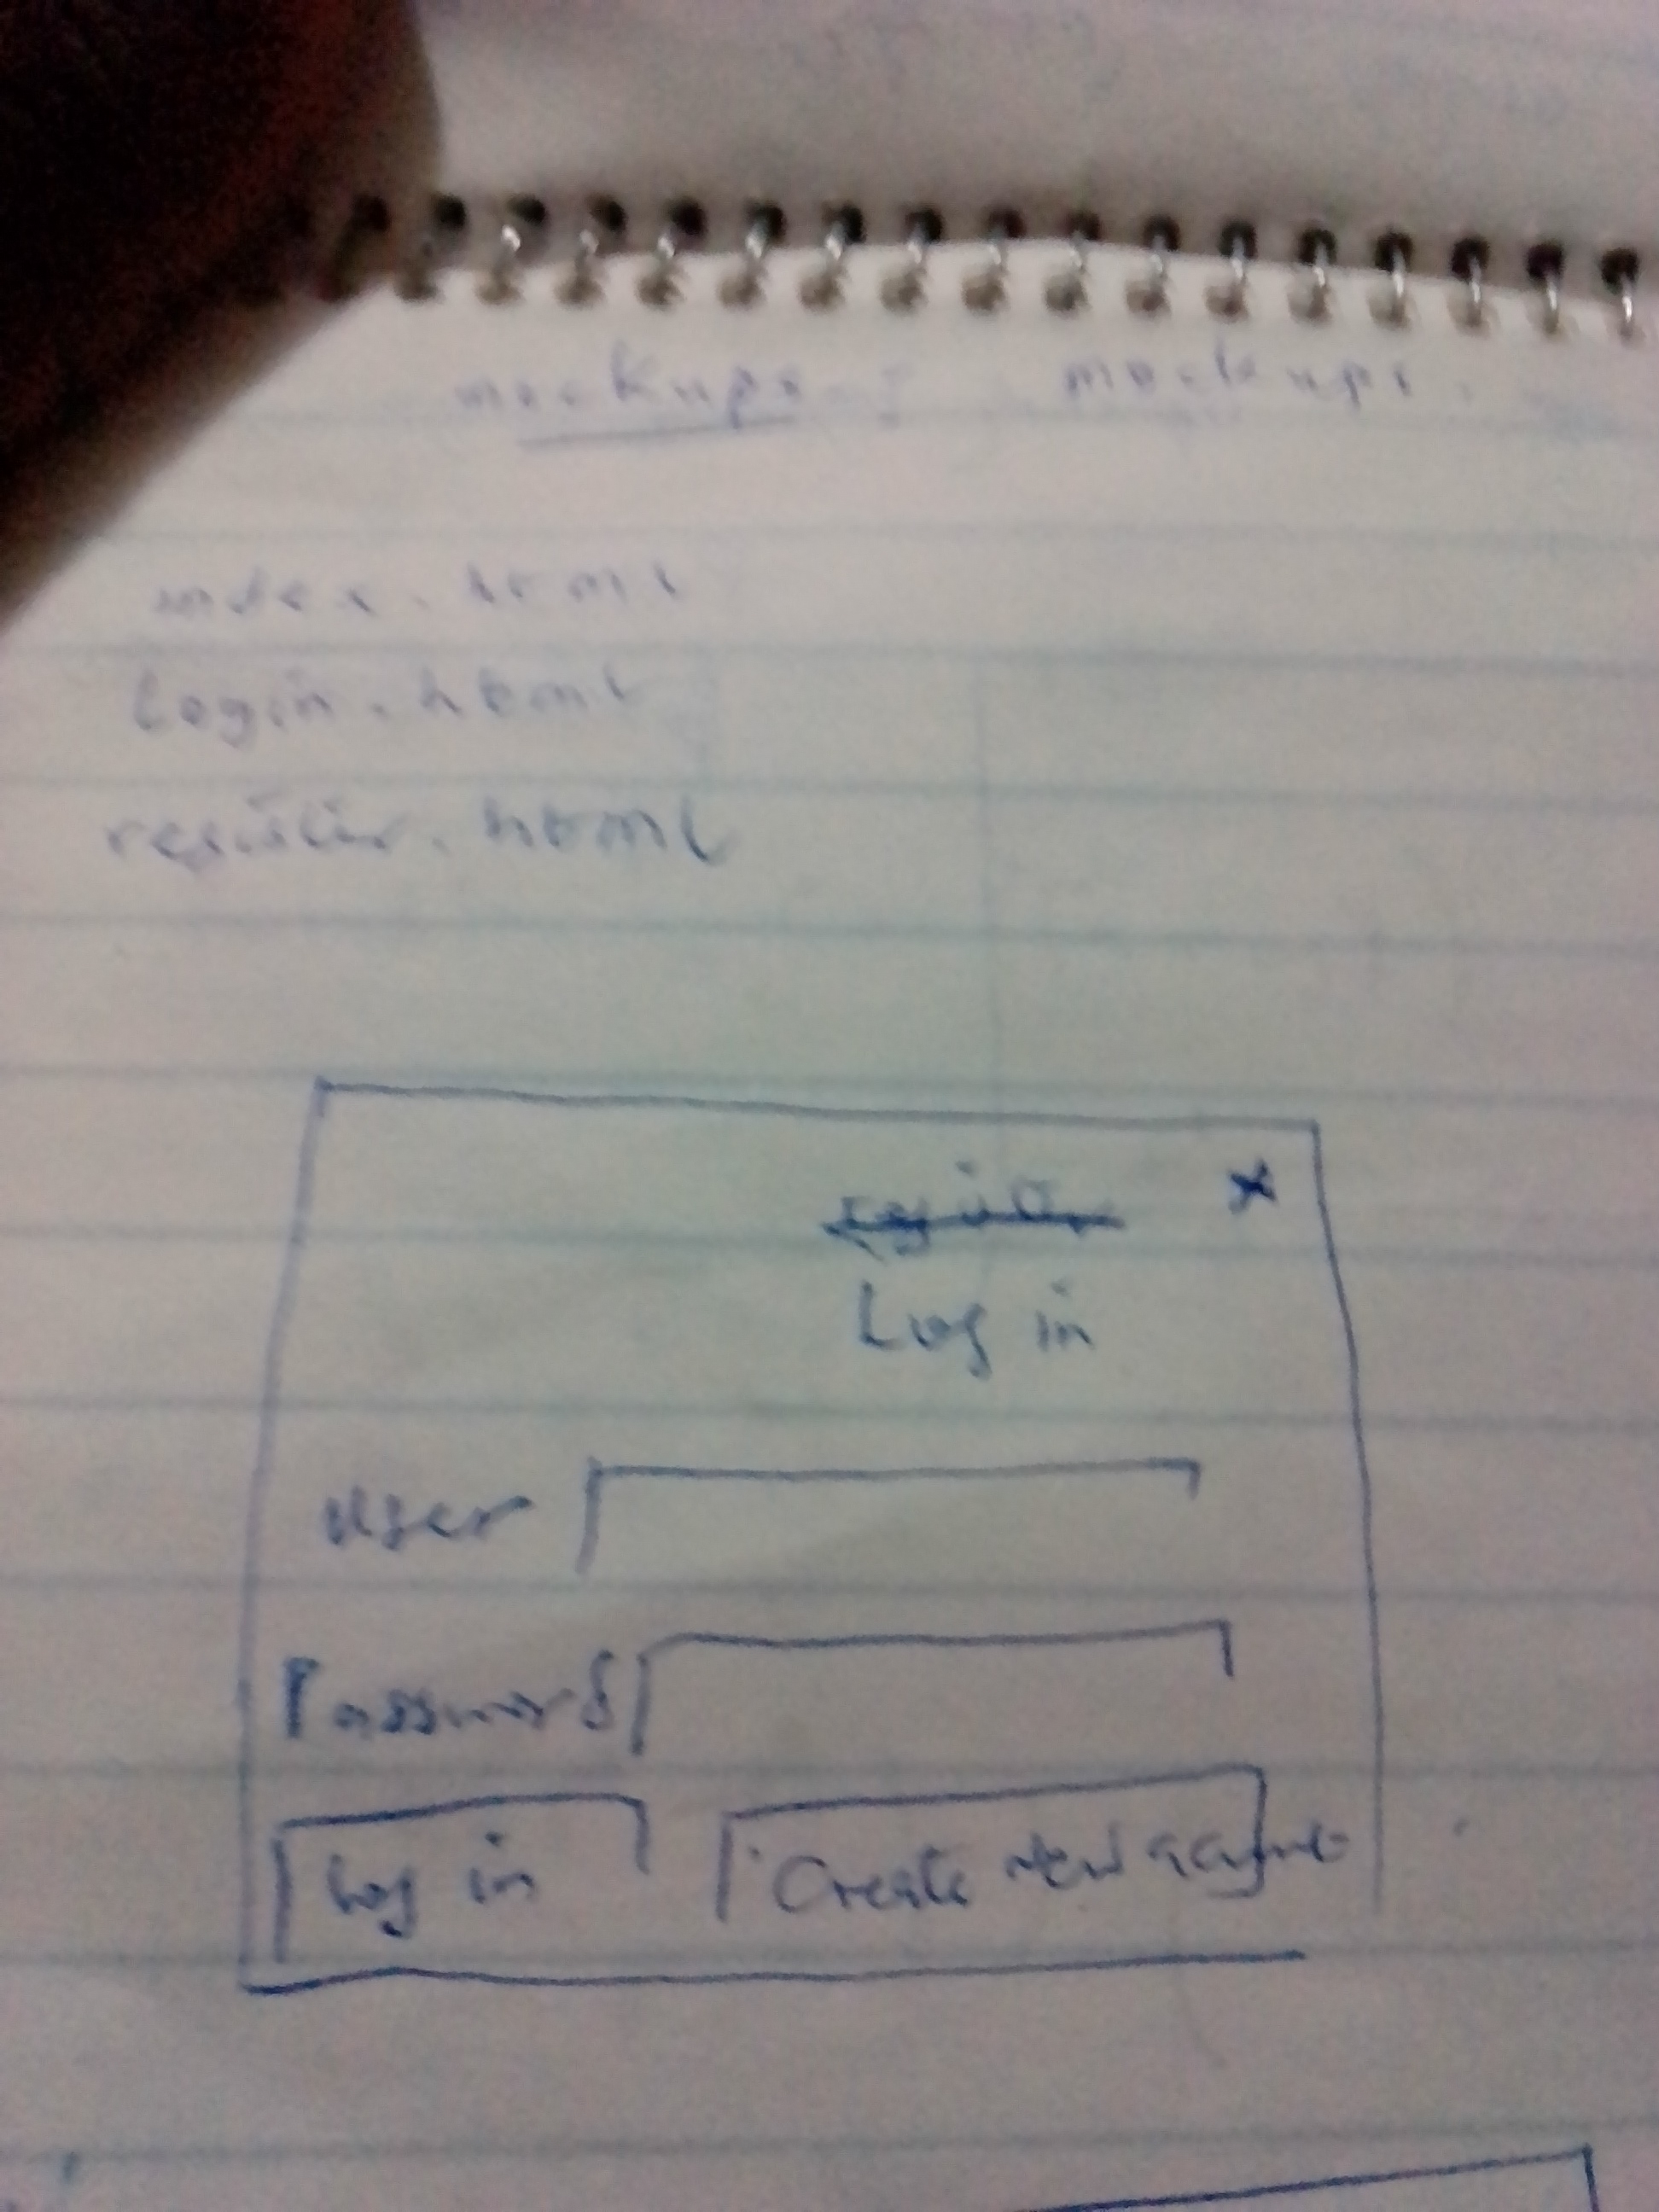 mockups : mockups.
index.html
login.html
register.html
x
Log in
User
Password
Log in Create new